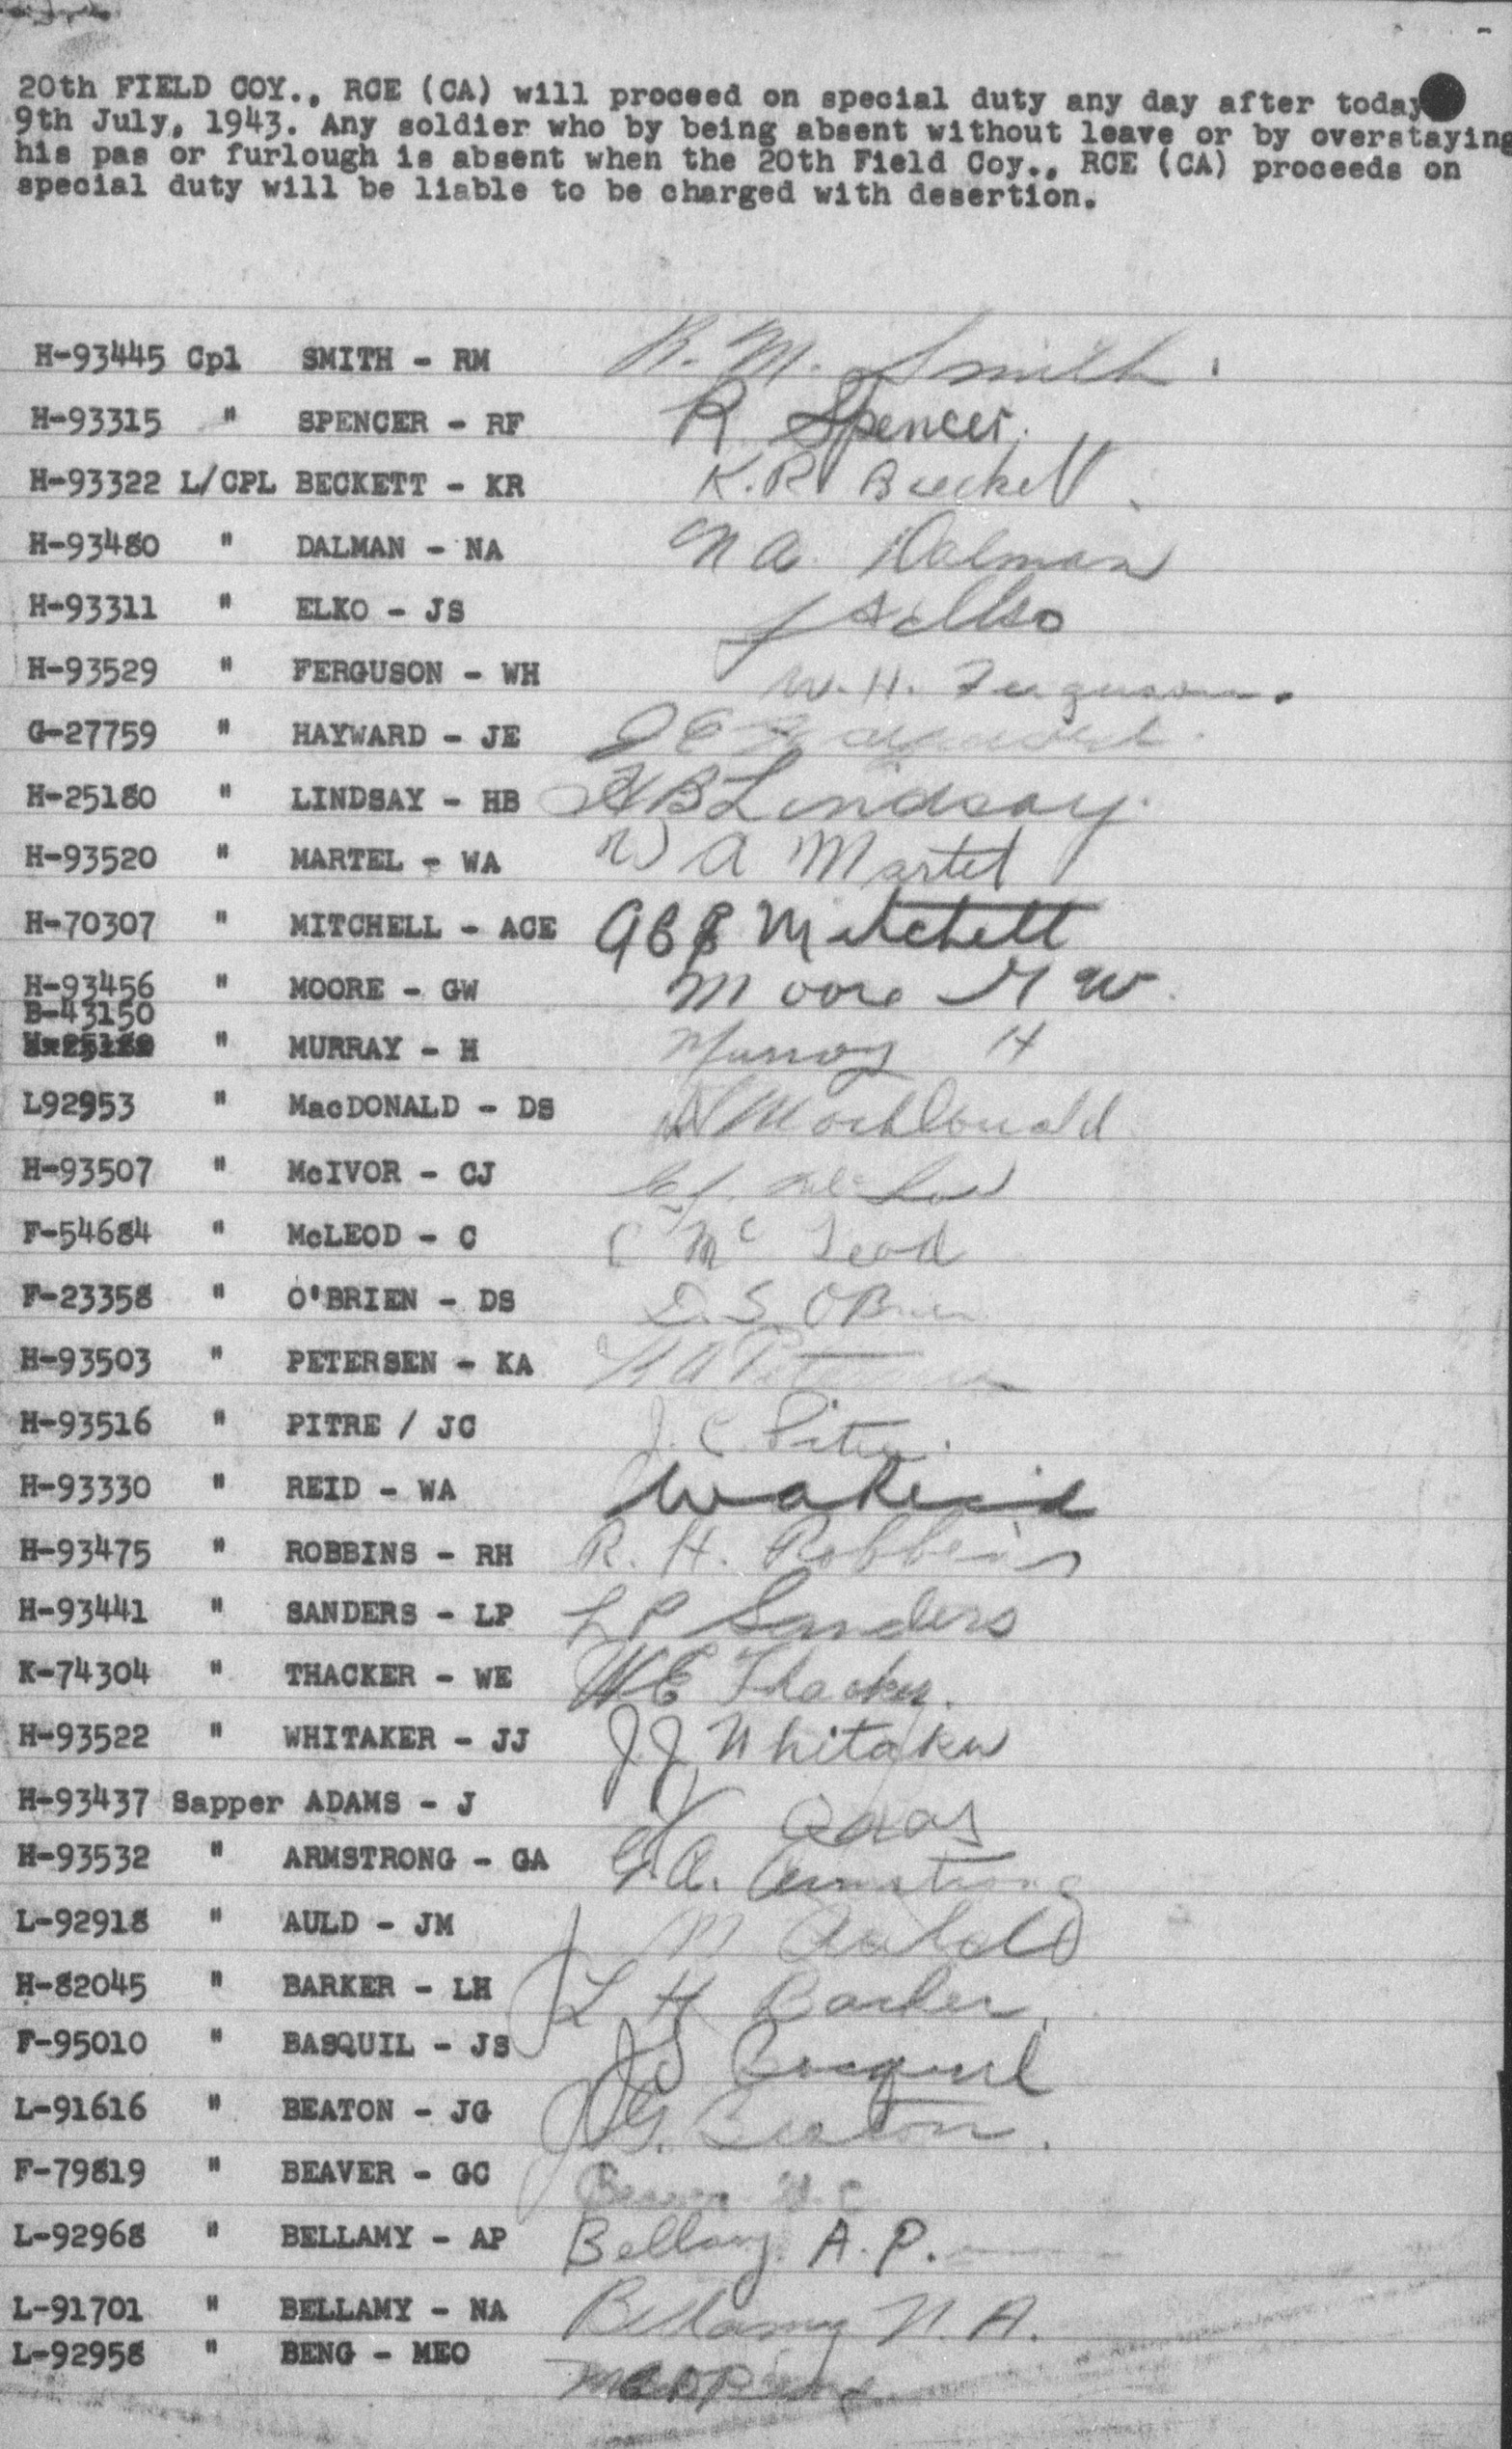 20th FIELD COY., RCE (CA) will proceed on special duty any day after today
9th July, 1943. Any soldier who by being absent without leave or by overstaying
his pas or furlough is absent when the 20th Field Coy., RCE (CA) proceeds on
special duty will be liable to be charged with desertion.
H-93445 Cpl SMITH - RM R. M. Smith
H-93315 " SPENCER - RF R. Spencer.
H-93322 L/CPL BECKETT - KR K.R. Beckett
H-93480 " DALMAN - NA N A. Dalman
H-93311 " ELKO - JS J S Elko
H-93529 " FERGUSON - WH W. H. Ferguson.
G-27759 " HAYWARD - JE J E Hayward.
H-25180 " LINDSAY - HB H B Lindsay.
H-93520 " MARTEL - WA W A Martel
H-70307 " MITCHELL - ACE Mitchell
H-93456 " MOORE - GW Moore G W.
B-43150
" MURRAY - H Murray H
L92953 " MacDONALD - DS MacDonald
H-93507 " McIVOR - CJ C J.
F-54684 " McLEOD - C C Mc Leod
F-23358 " O'BRIEN - DS D. S. O'Brien
H-93503 " PETERSEN - KA K A Petersen
H-93516 " PITRE / JC J. C. Pitre.
H-93330 " REID - WA W A Reid
H-93475 " ROBBINS - RH R. H. Robbins
H-93441 " SANDERS - LP L P Sanders
K-74304 " THACKER - WE W E Thacker.
H-93522 " WHITAKER - JJ J J Whitaker
H-93437 Sapper ADAMS - J J
H-93532 " ARMSTRONG - GA G. A. Armstrong
L-92918 " AULD - JM J M Auld
H-82045 " BARKER - LH L H Barker.
F-95010 " BASQUIL - JS J S Basquil
L-91616 " BEATON - JG J G. Beaton.
F-79819 " BEAVER - GC Beaver G. C
L-92968 " BELLAMY - AP Bellamy. A. P.
L-91701 " BELLAMY - NA Bellamy N. A.
L-92958 " BENG - MEO